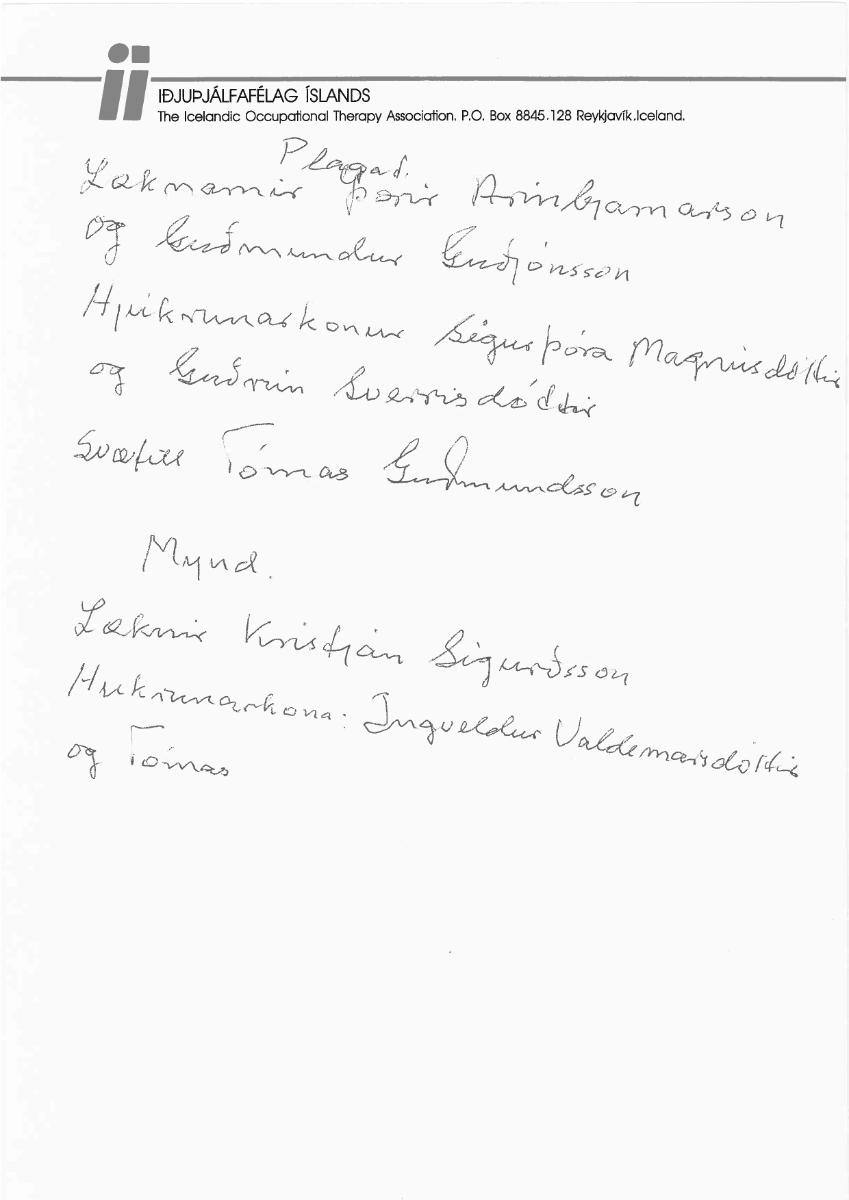 IÐJUÞJÁLFAFÉLAG ÍSLANDS
The Icelandic Occupational Therapy Association. P.O. Box 8845.128 Reykjavík.Iceland.
Plagad.
Læknarnir Þorir Arinbjarnarson
og Guðmundur Guðjónsson
Hjúkrunarkonur Sigurþóra Magnúsdóttir
og Guðrún Sverrisdóttir
Svæfill Tómas Guðmundsson
Mynd.
Læknir Kristján Sigurðsson
Hukrunarkona: Ingveldur Valdemarsdóttir
og Tómas